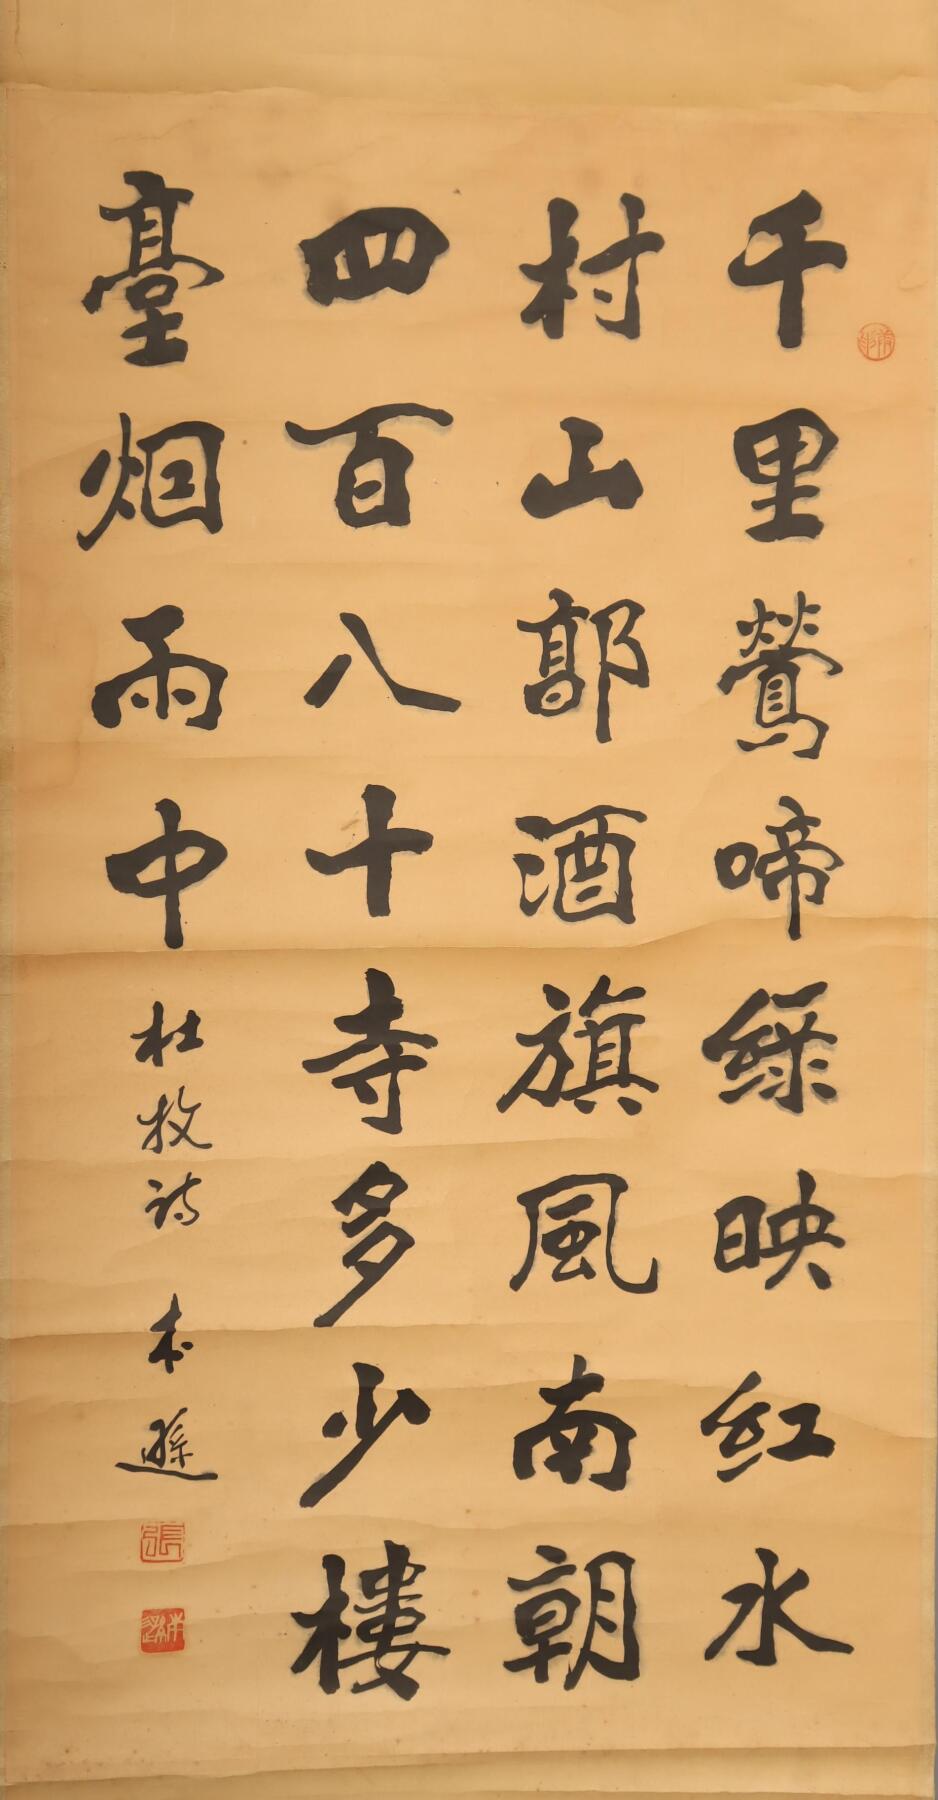 千里鶯啼綠映紅水
村山郭酒旗風南朝
四百八十寺多少樓
臺烟雨中
杜牧诗 本遜
張
本遜